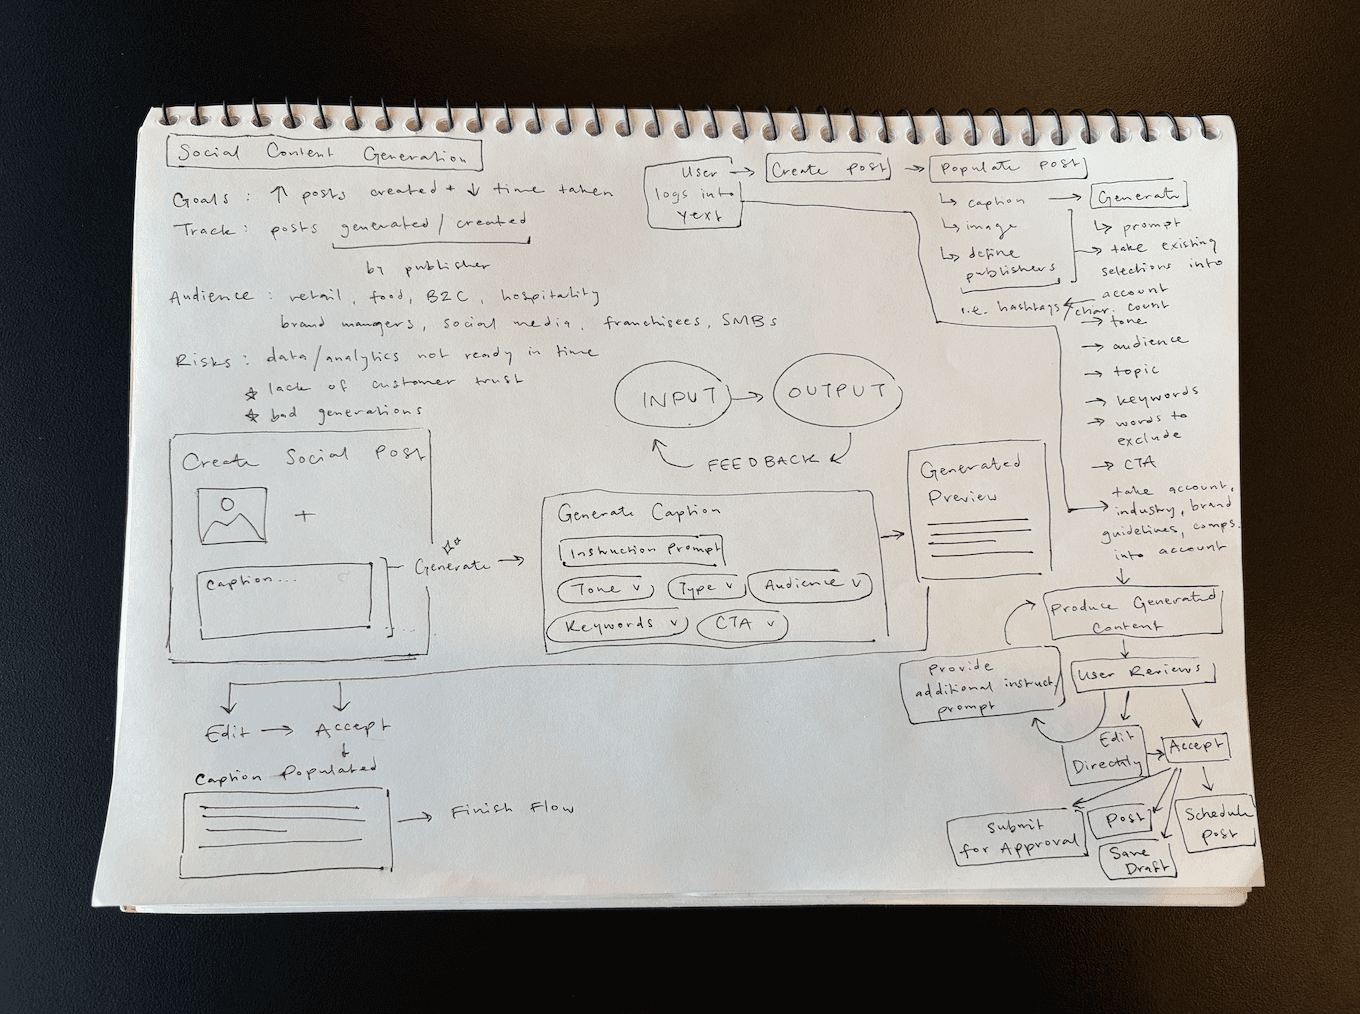 Social Content Generation
Goals: ↑ posts created + ↓ time taken
Track: posts generated/created
by publisher
Audience: retail, food, B2C, hospitality
brand mangers, social media, franchisees, SMBs
Risks: data/analytics not ready in time
☆ lack of customer trust
☆ bad generations
User → Create Post → Populate Post
logs into
Yext
↳ caption → Generate
↳ image
↳ define
publishers
↳ prompt
↳ take existing
selections into
account
i.e. hashtags/char. count
→ tone
→ audience
→ topic
→ keywords
→ words to
exclude
→ CTA
take account,
industry, brand
guidelines, comps.
into account
INPUT → OUTPUT
FEEDBACK
Create Social Post
+
caption...
Generate
Generate Caption
Instruction Prompt
Tone v Type v Audience v
Keywords v CTA v
Generated
Preview
Edit → Accept
Caption Populated
Finish Flow
Produce Generated
Content
User Reviews
Provide
additional instruct/
prompt
Edit
Directly
Accept
Submit
for Approval
Post
Save
Draft
Schedule
Post